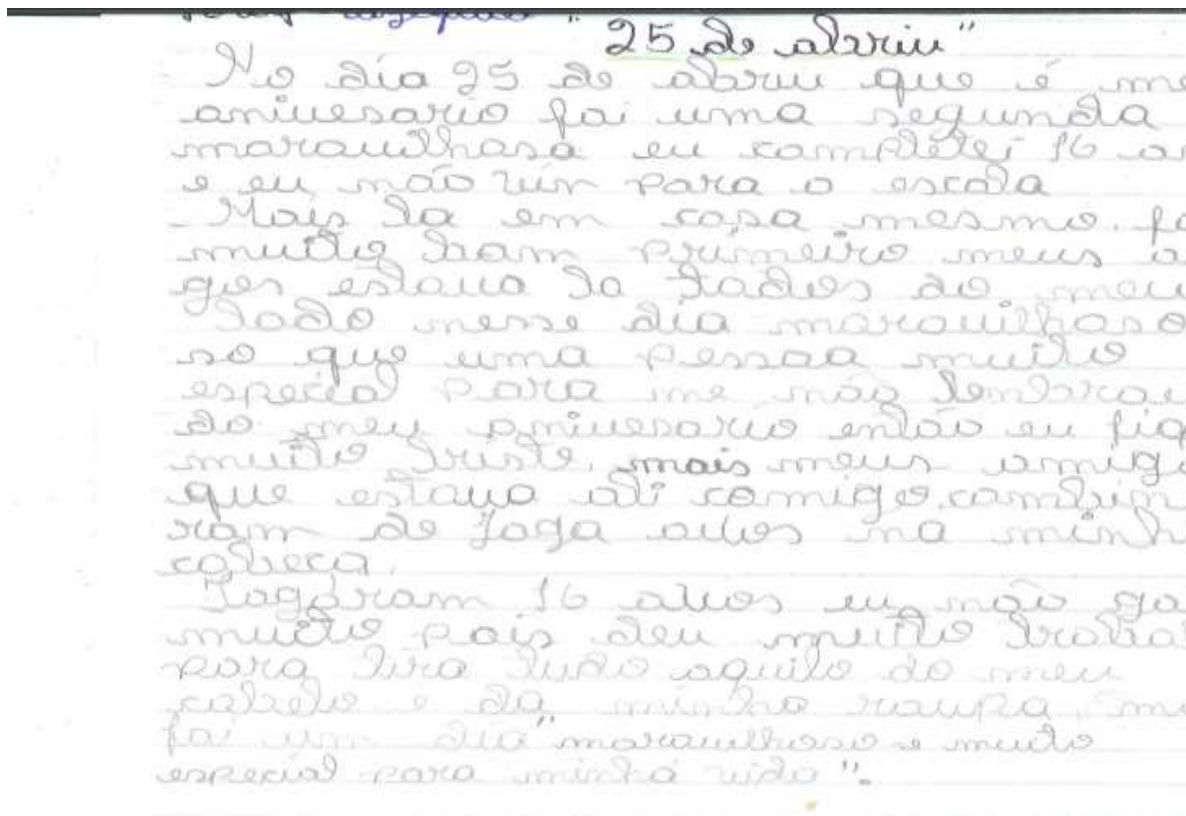 "25 de abriu"
No dia 25 de abriu que é me
aniuesario foi uma segunda
marauilhasa eu completei 16 a
e eu não vin para o escola
Mais la em casa mesmo. fo
muito bom primeiro meus a
gos estaua la todos do meu
lado nesse dia marauilhoso
so que uma pessoa muito
especial para me não lembrou
do meu aniuesario então eu fiq
muito triste, mais meus amig
que estaua ali comigo. combin
ram de joga ouos na minh
cabeca.
Jogaram 16 ouos eu não go
muito pois deu muito traba
para tira tudo aquilo do meu
cabelo e da minha roupa, m
foi um dia "marauilhoso e muito
especial para minha vida".